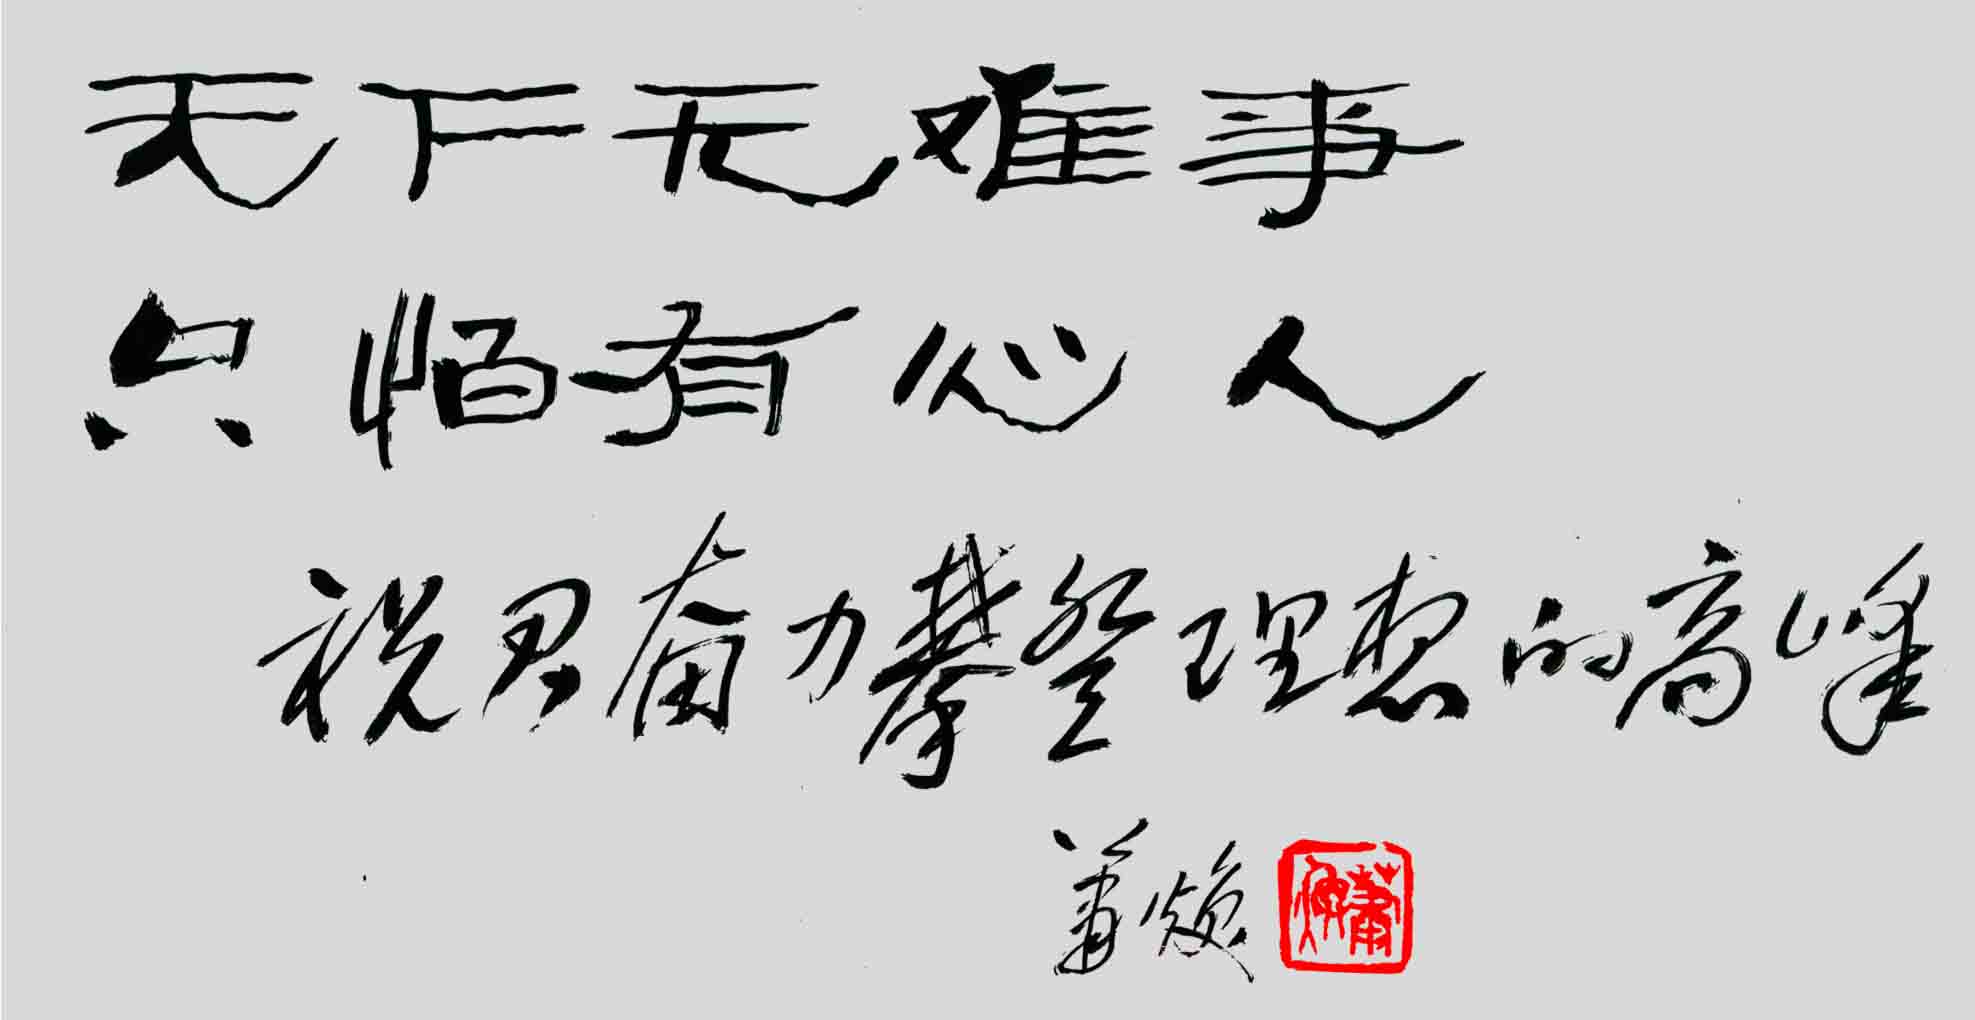 天下无难事
只怕有心人
祝君奋力攀登理想的高峰
萧焕
萧焕